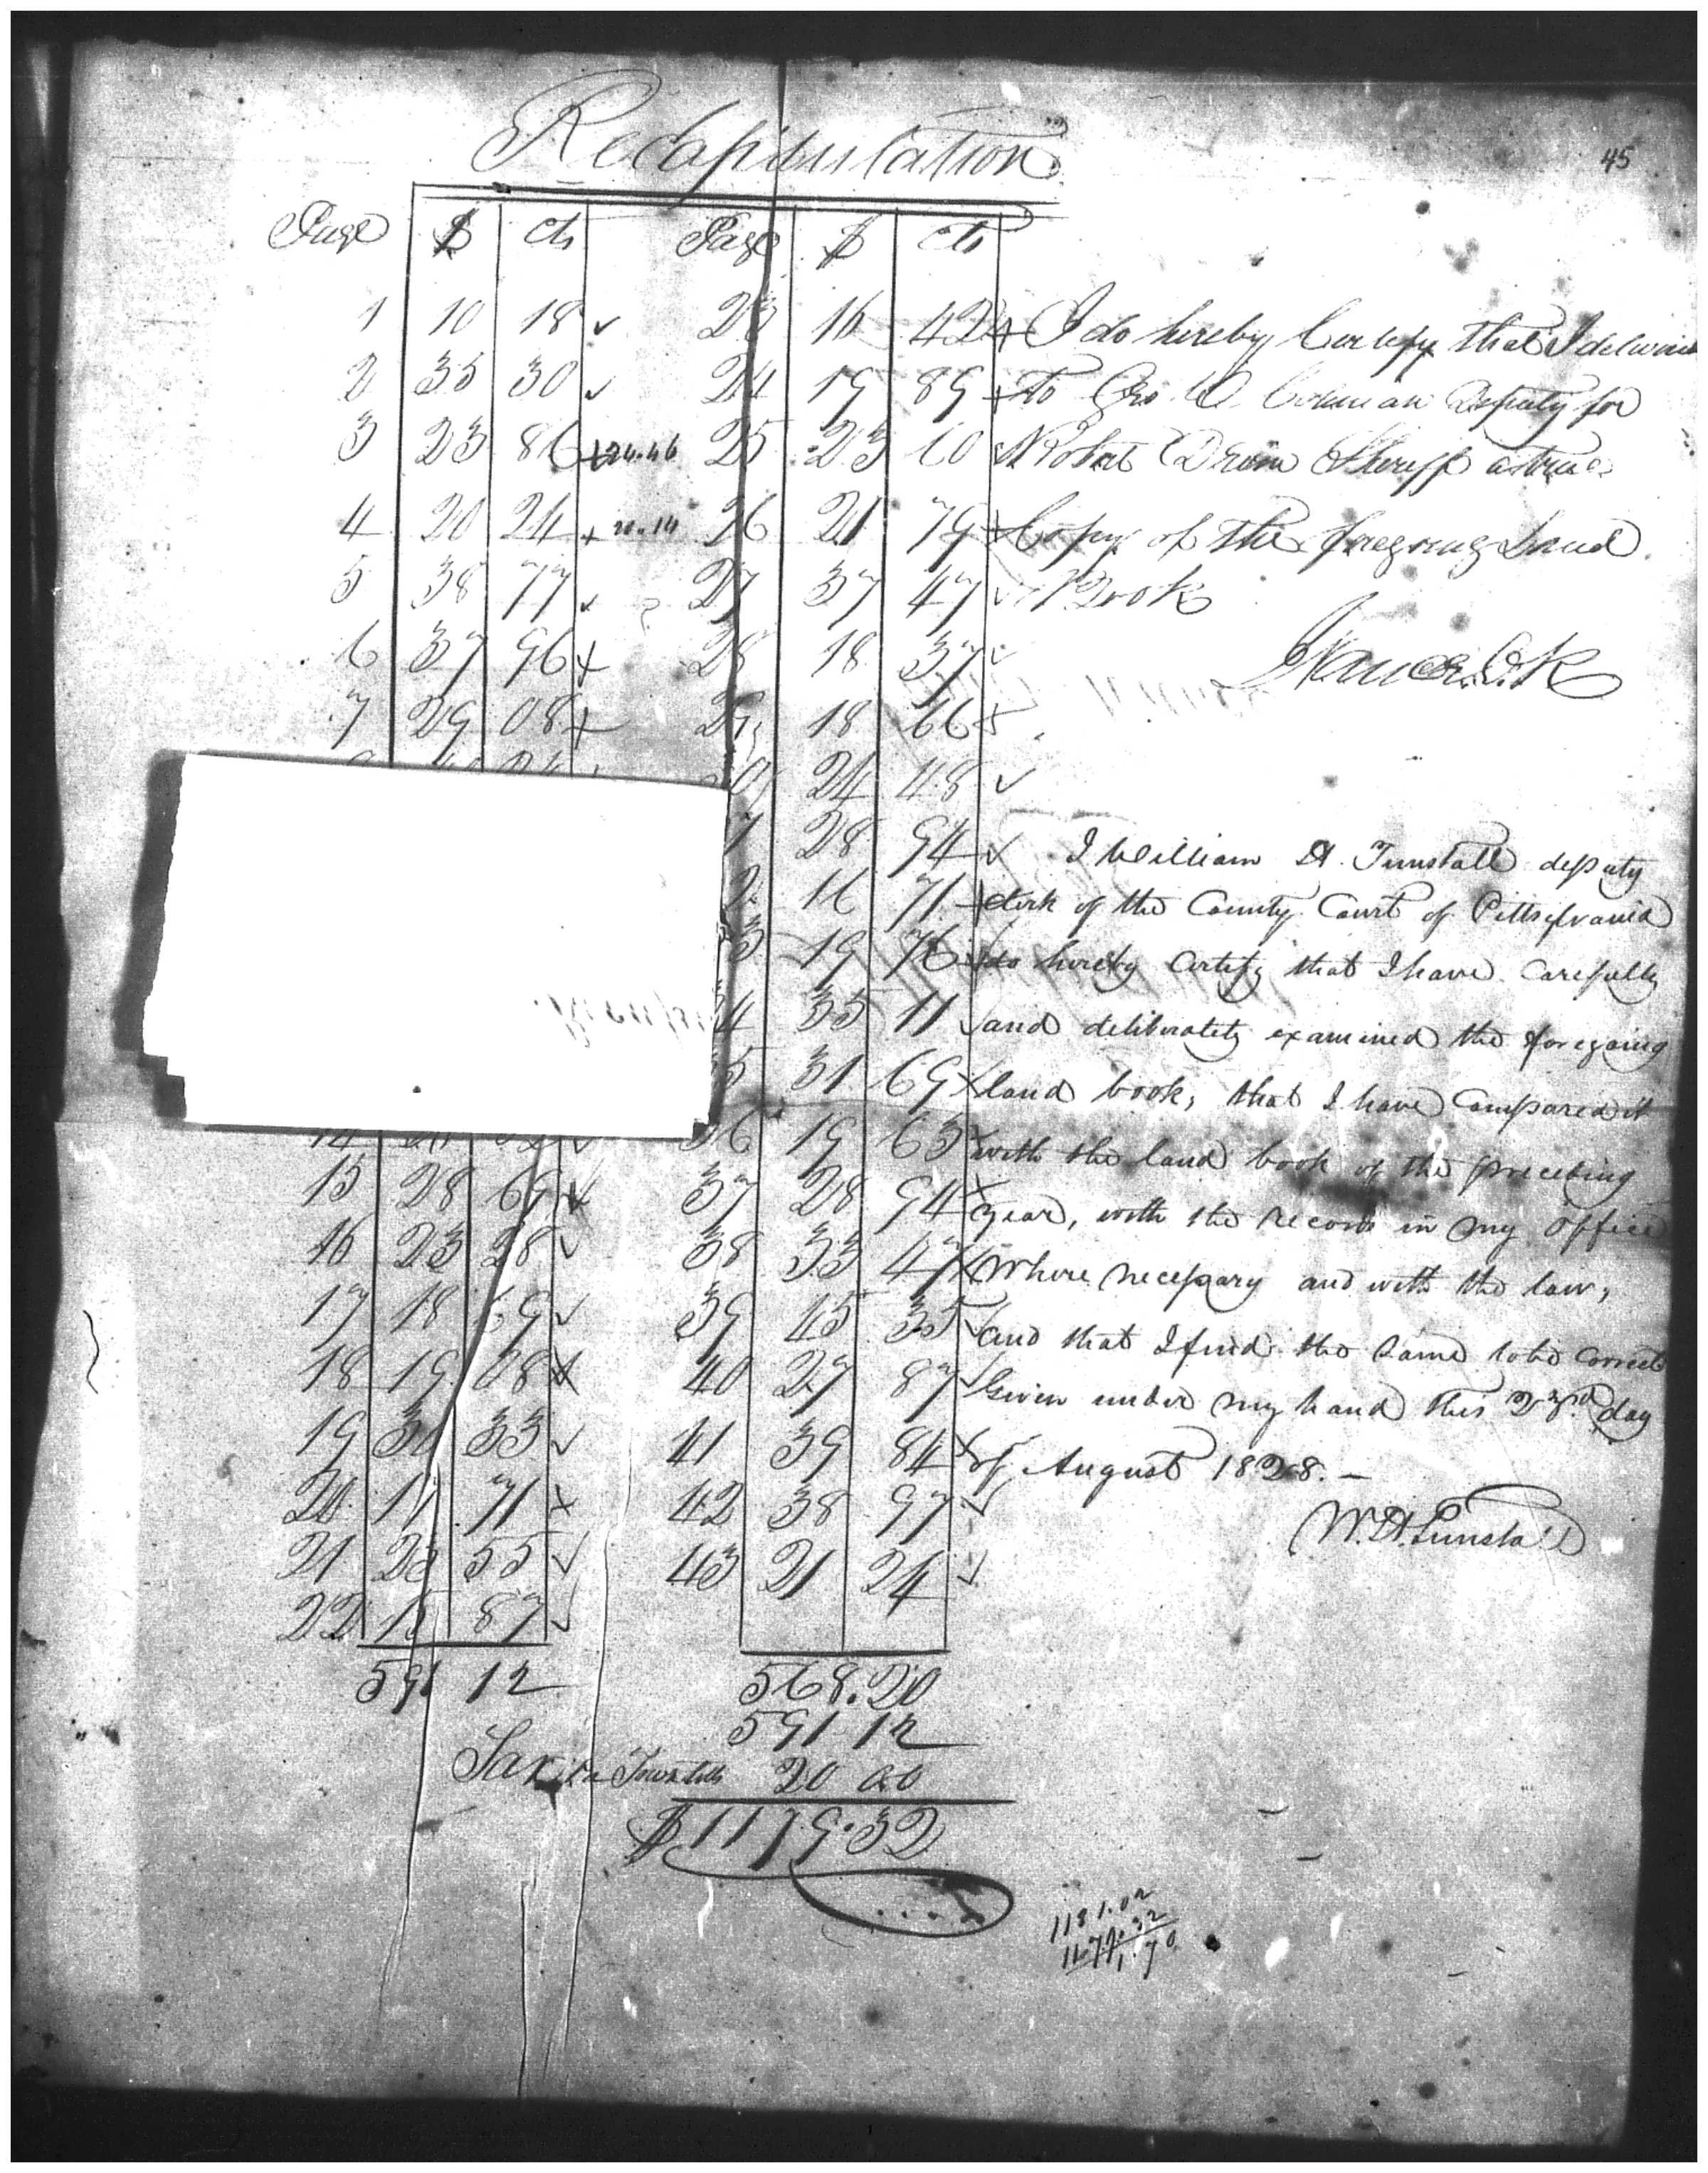 Recapitulation
45
Page $ cts Page $ cts
1 10 18 ✓ 23 16 42 + I do hereby Certify that I deliver
2 35 30 ✓ 24 19 89 + to Geo. Deputy for
3 23 86 + 24.46 25 23 60 ✓ Robert Sheriff a true
4 20 24 + 20.14 26 21 79 + Copy of the foregoing Land
5 38 77 ✓ 27 37 47 ✓ Book
6 37 96 + 28 18 37 ✓
7 29 08 + 29 18 66 +
24 48 ✓
28 94 ✓ I William H. Tunstall deputy
2 16 71 + clerk of the County Court of Pittsylvania
3 19 76 + do hereby certify that I have carefully
4 35 11 ✓ and deliberately examined the foregoing
5 31 69 + land book, that I have Compared it
14 36 19 63 + with the land book of the preceding
15 28 69 + 37 28 94 + year, with the records in my office
16 23 28 ✓ 38 33 47 + where necessary and with the law,
17 18 69 ✓ 39 45 35 ✓ and that I find the same to be correct
18 19 08 + 40 27 87 ✓ Given under my hand this 23rd day
19 33 ✓ 41 39 84 + of August 1828. —
20 71 + 42 38 97 ✓
W.H. Tunstall
21 55 ✓ 43 21 24 ✓
22 87 ✓
591 12 568.20
591 12
Tax on Town lotts 20 00
$1179.32
1181.02
1179.32
1.70